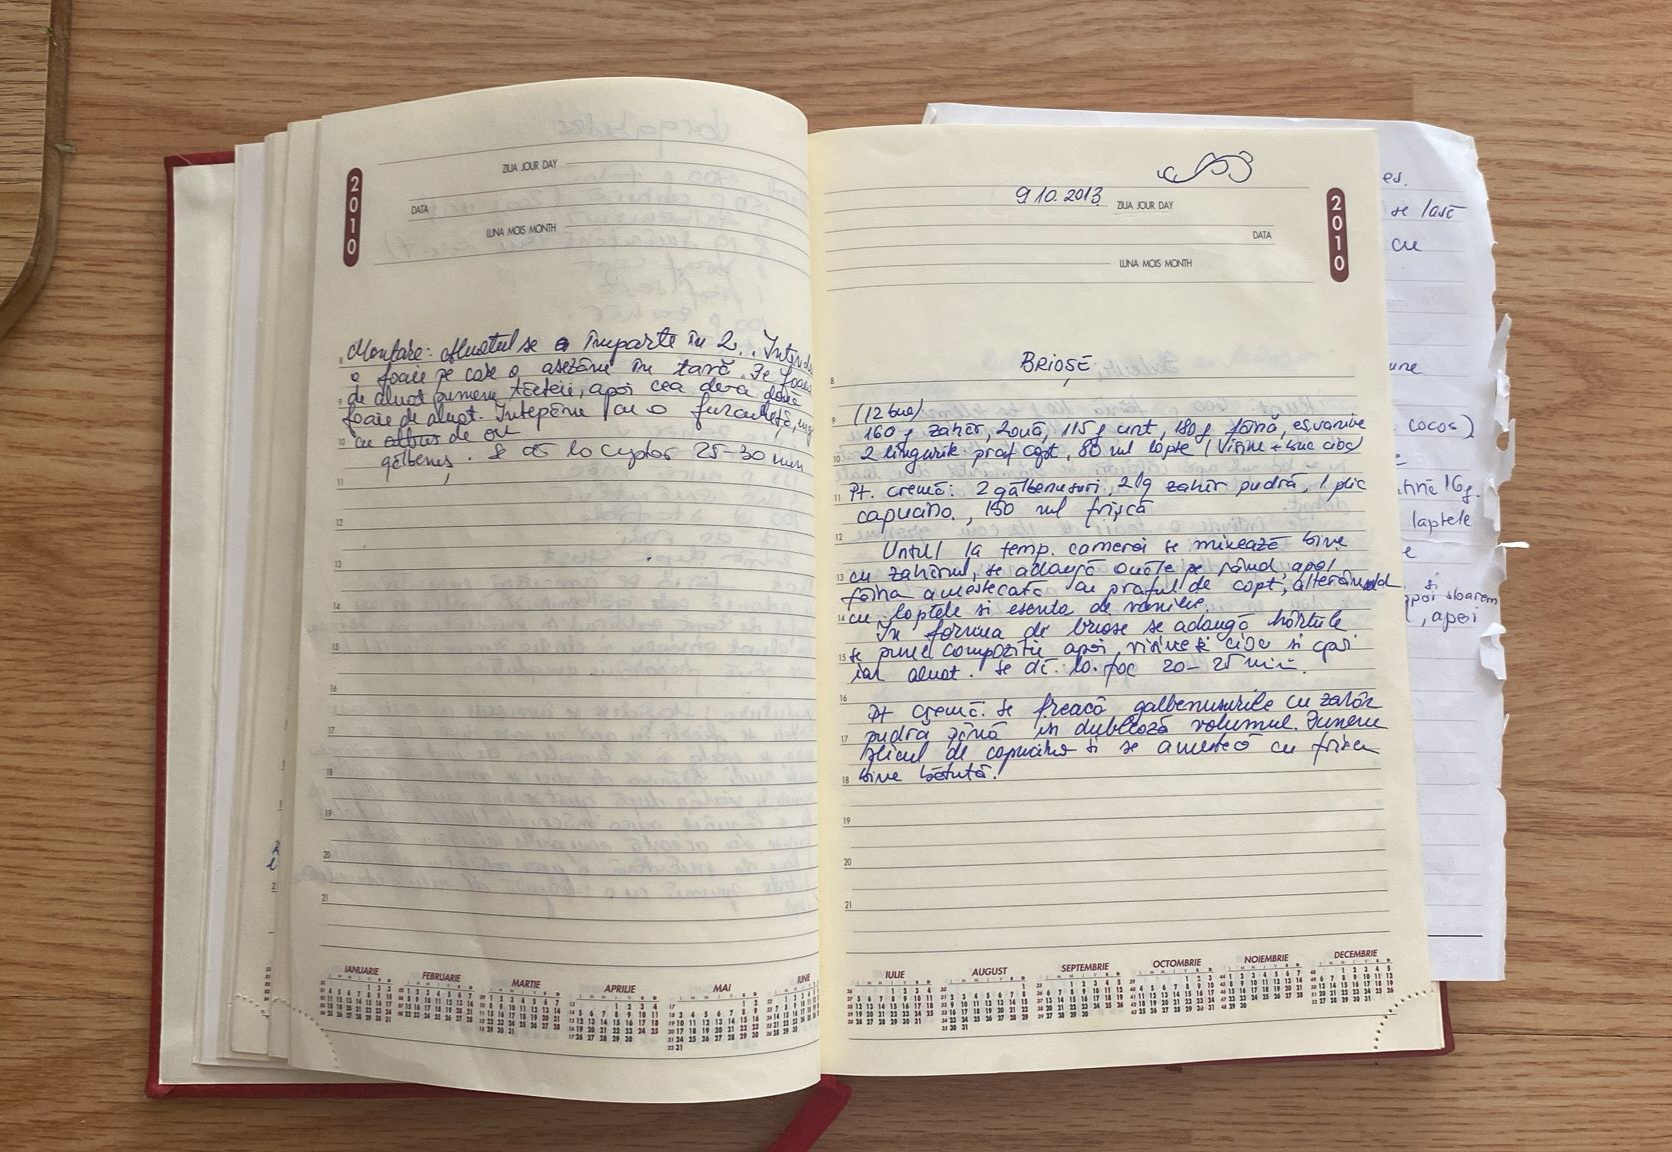 2010
ZIUA JOUR DAY
DATA
LUNA MOIS MONTH
Montare: Aluatul se împarte în 2. Întinde
o foaie pe care o așezăm în tavă. Pe foaie
de aluat punem tăeței, apoi cea de a doua
foaie de aluat. Întepăm cu o furculiță, ung
cu albus de ou
gălbenuș. Se dă la cuptor 25-30 min
8
9
10
11
12
13
14
15
16
17
18
19
20
21
IANUARIE FEBRUARIE MARTIE APRILIE MAI IUNIE
9 10. 2013
ZIUA JOUR DAY
DATA
LUNA MOIS MONTH
2010
BRIOȘE
(12 buc)
160 g zahăr, 2 ouă, 115 g unt, 180 g făină, es. vanilie
2 lingurițe praf copt, 80 ml lapte (Vișine + buc cioc)
Pt. cremă: 2 gălbenușuri, 20g zahăr pudră, 1 plic
capucino, 150 ml frișcă
Untul la temp. camerei se mixează bine
cu zahărul, se adaugă ouăle pe rând apoi
făina amestecată cu praful de copt, alternând
cu laptele si esenta de vanilie.
În forma de briose se adaugă hârtiile
se pune compozitie apoi vișine si cioc si apoi
iar aluat. Se dă la foc 20-25 min.
Pt cremă. Se freacă galbenusurile cu zahăr
pudra până isi dublează volumul. Punem
plicul de capucino si se amestecă cu frisca
bine bătută.
8
9
10
11
12
13
14
15
16
17
18
19
20
21
IULIE AUGUST SEPTEMBRIE OCTOMBRIE NOIEMBRIE DECEMBRIE
es.
se lasă
cu
cocos)
16g.
laptele
si
apoi
, apoi